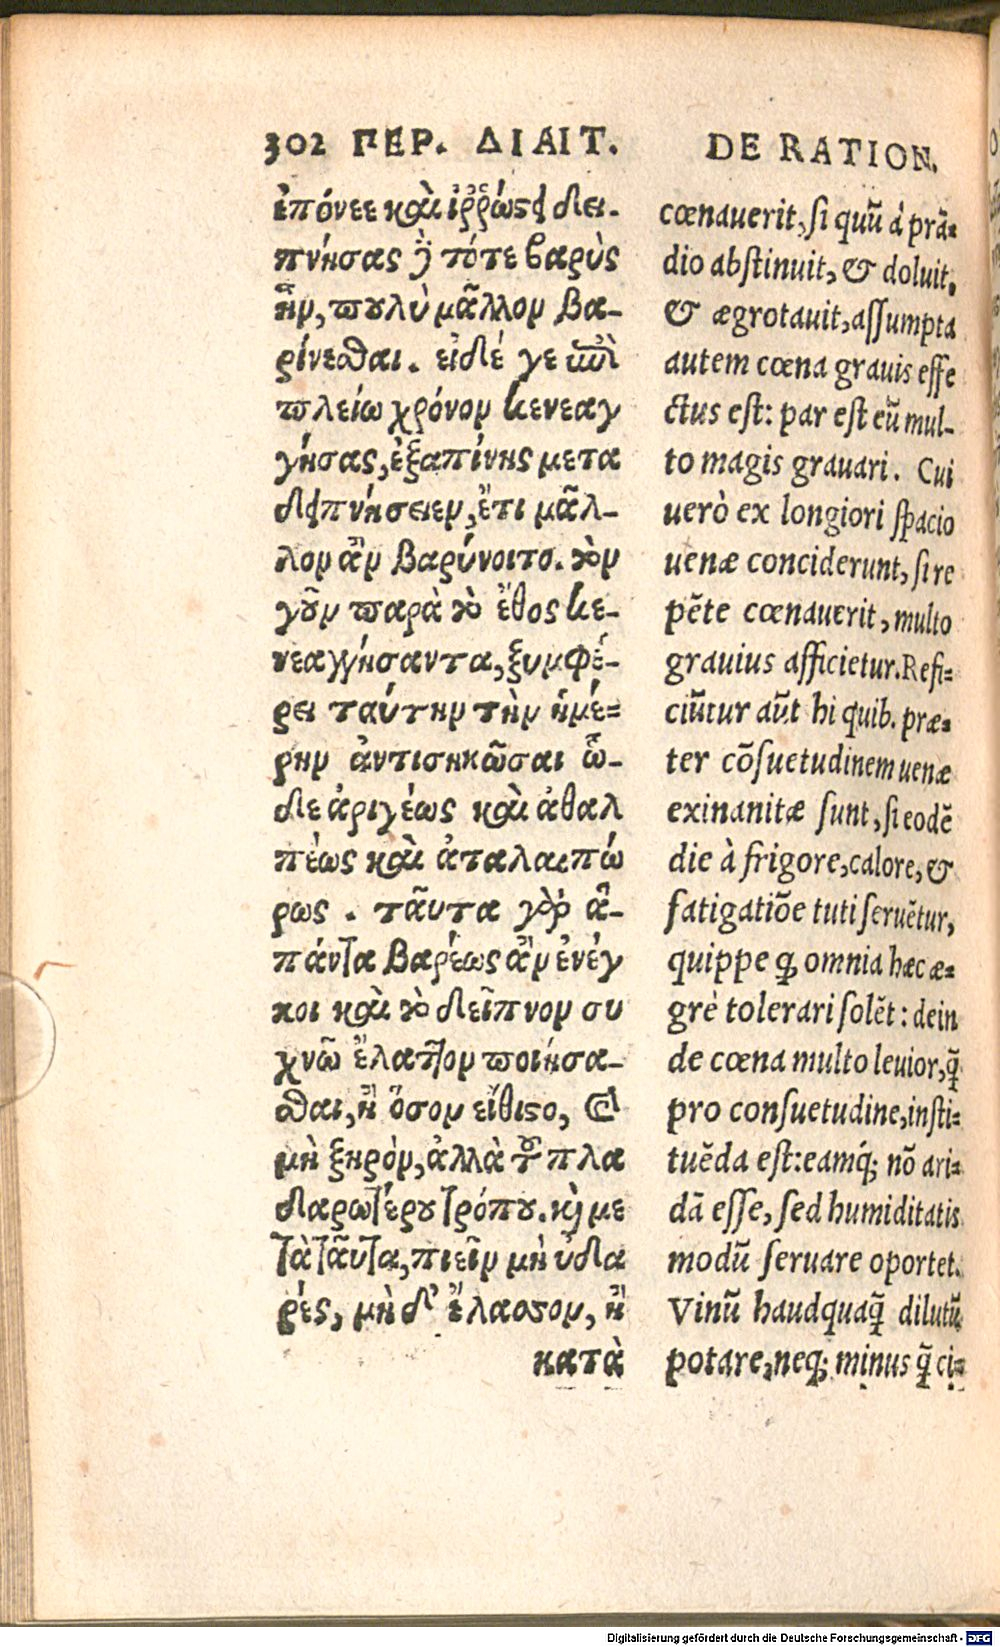 302 ΠΕΡ. ΔΙΑΙΤ.
ἐπόνεε καὶ ἠῤῥώστει δει-
πνήσας ὅτι τότε βαρὺς
ἦν, πουλὺ μᾶλλον βα-
ρίνεσθαι. εἰ δέ γε ἐπὶ
πλείω χρόνον κενεαγ
γήσας, ἐξαπίνης μετα
δειπνήσειεν, ἔτι μᾶλ-
λον ἂν βαρύνοιτο. τὸν
γοῦν παρὰ τὸ ἔθος κε-
νεαγγήσαντα, ξυμφέ-
ρει ταύτην τὴν ἡμέ-
ρην ἀντισηκῶσαι ὧ-
δε ἀριγέως καὶ ἀθαλ
πέως καὶ ἀταλαιπώ
ρως. ταῦτα γὰρ ἅ-
πάντα βαρέως ἂν ἐνέγ
κοι καὶ τὸ δεῖπνον συ
χνῶ ἔλαττον ποιήσα-
σθαι, ἢ ὅσον εἴθιστο, καὶ
μὴ ξηρὸν, ἀλλὰ τοῦ πλα
δαρωτέρου τρόπου. καὶ με
τὰ ταῦτα, πιεῖν μὴ ὑδα
ρές, μὴ δ' ἔλασσον, ἢ
κατὰ
DE RATION.
cœnauerit, si quũ à prã-
dio abstinuit, & doluit,
& ægrotauit, assumpta
autem cœna grauis effe
ctus est: par est eũ mul-
to magis grauari. Cui
uerò ex longiori spacio
uenæ conciderunt, si re
pẽte cœnauerit, multo
grauius afficietur. Refi-
ciũtur aũt hi quib. præ-
ter cõsuetudinem uenæ
exinanitæ sunt, si eodẽ
die à frigore, calore, &
fatigatiõe tuti seruẽtur,
quippe ꝙ omnia hæc æ-
grè tolerari solẽt: dein
de cœna multo leuior, q̃
pro consuetudine, insti-
tuẽda est: eamq́; nõ ari-
dã esse, sed humiditatis
modũ seruare oportet.
Vinũ haudquaq̃ dilutũ
potare, neq; minus q̃ ci-
Digitalisierung gefördert durch die Deutsche Forschungsgemeinschaft - DFG